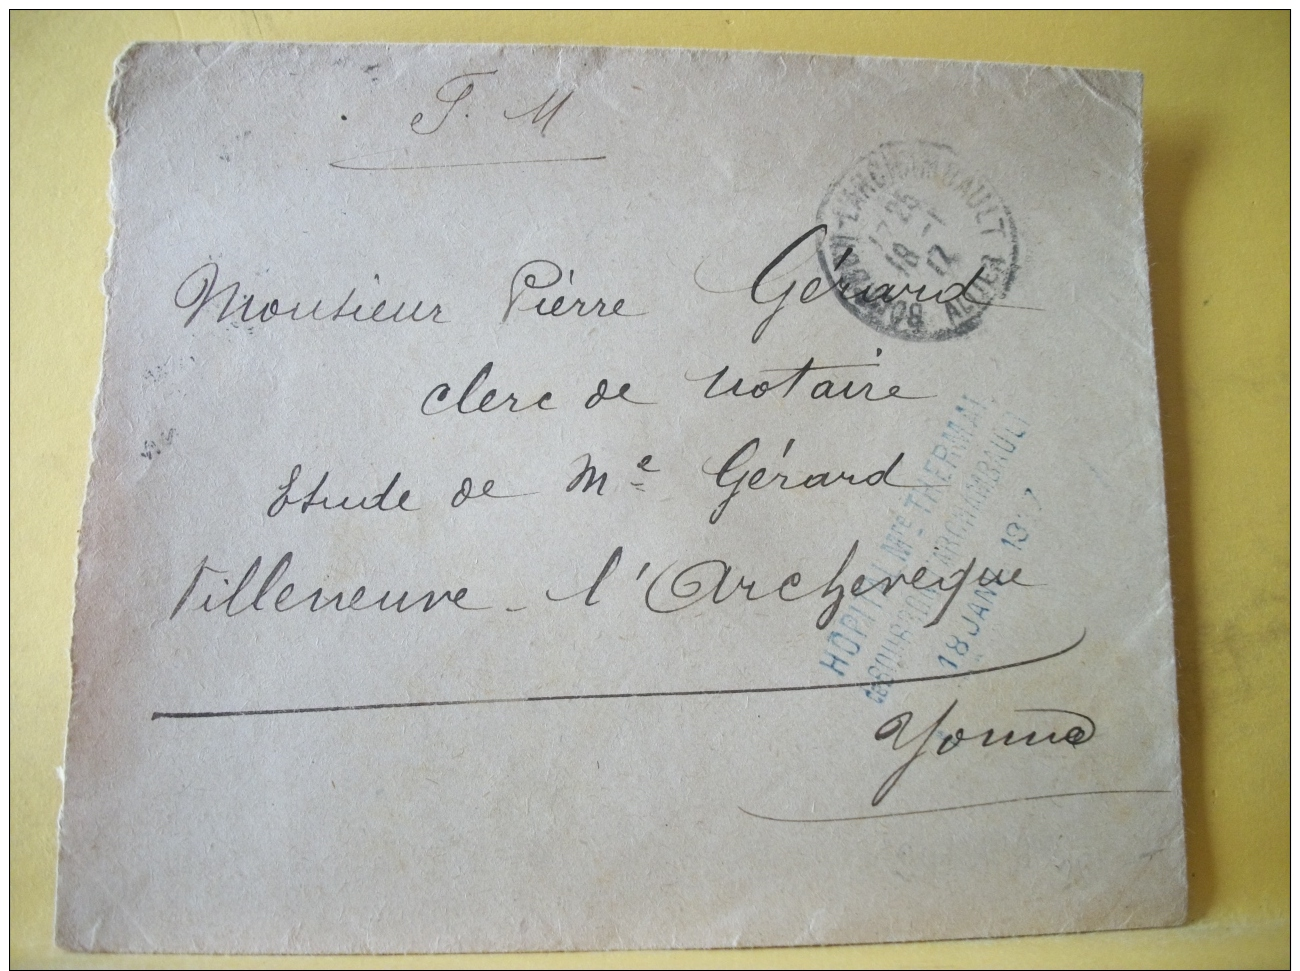 F. M
BOURBON-L'ARCHAMBAULT
ALLIER
17 25
18 -1
17
Monsieur Pierre Gérard
clerc de notaire
Etude de Me Gérard
Villeneuve - l'Archeveque
Yonne
HÔPITAL Mre THERMAL
de BOURBON L'ARCHAMBAULT
18 JANV 1917